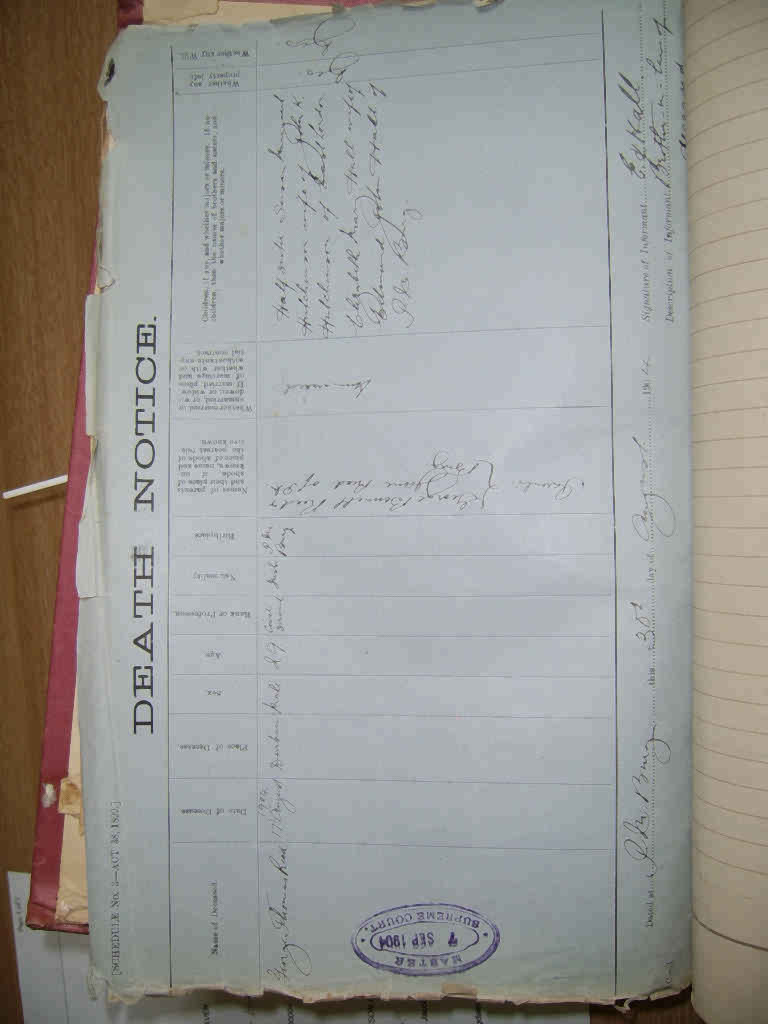 [SCHEDULE No. 3—ACT 38, 1899.]
DEATH NOTICE.
Name of Deceased.
Date of Decease.
Place of Decease.
Sex.
Age.
Rank or Profession.
Nationality
Birthplace
Names of parents and their place of abode, if unknown, names and places of abode of the nearest relatives known.
Whether married or unmarried, or widower, or widow. If married, place of marriage and whether with or without antenuptial contract.
Children, if any, and whether majors or minors. If no children, then the names of brothers and sisters, and whether majors or minors.
Whether any property left.
Whether any Will.
George Thomas Reed
17 August
1904
Durban
Male
29
P M Burg
Parents
George Bennett Reed &
Jane Reed of P M
Burg
Unmarried
Half sister Susan Margaret
Hutchinson wife of John K.
Hutchinson of
Elizabeth Mary Hall wife of
Edmund John Hall of
P.M. Burg.
MASTER
7 SEP 1904
SUPREME COURT
Dated at P M Burg this 30th day of August 1904
Signature of Informant E J Hall
Description of Informant Brother-in-law of
deceased